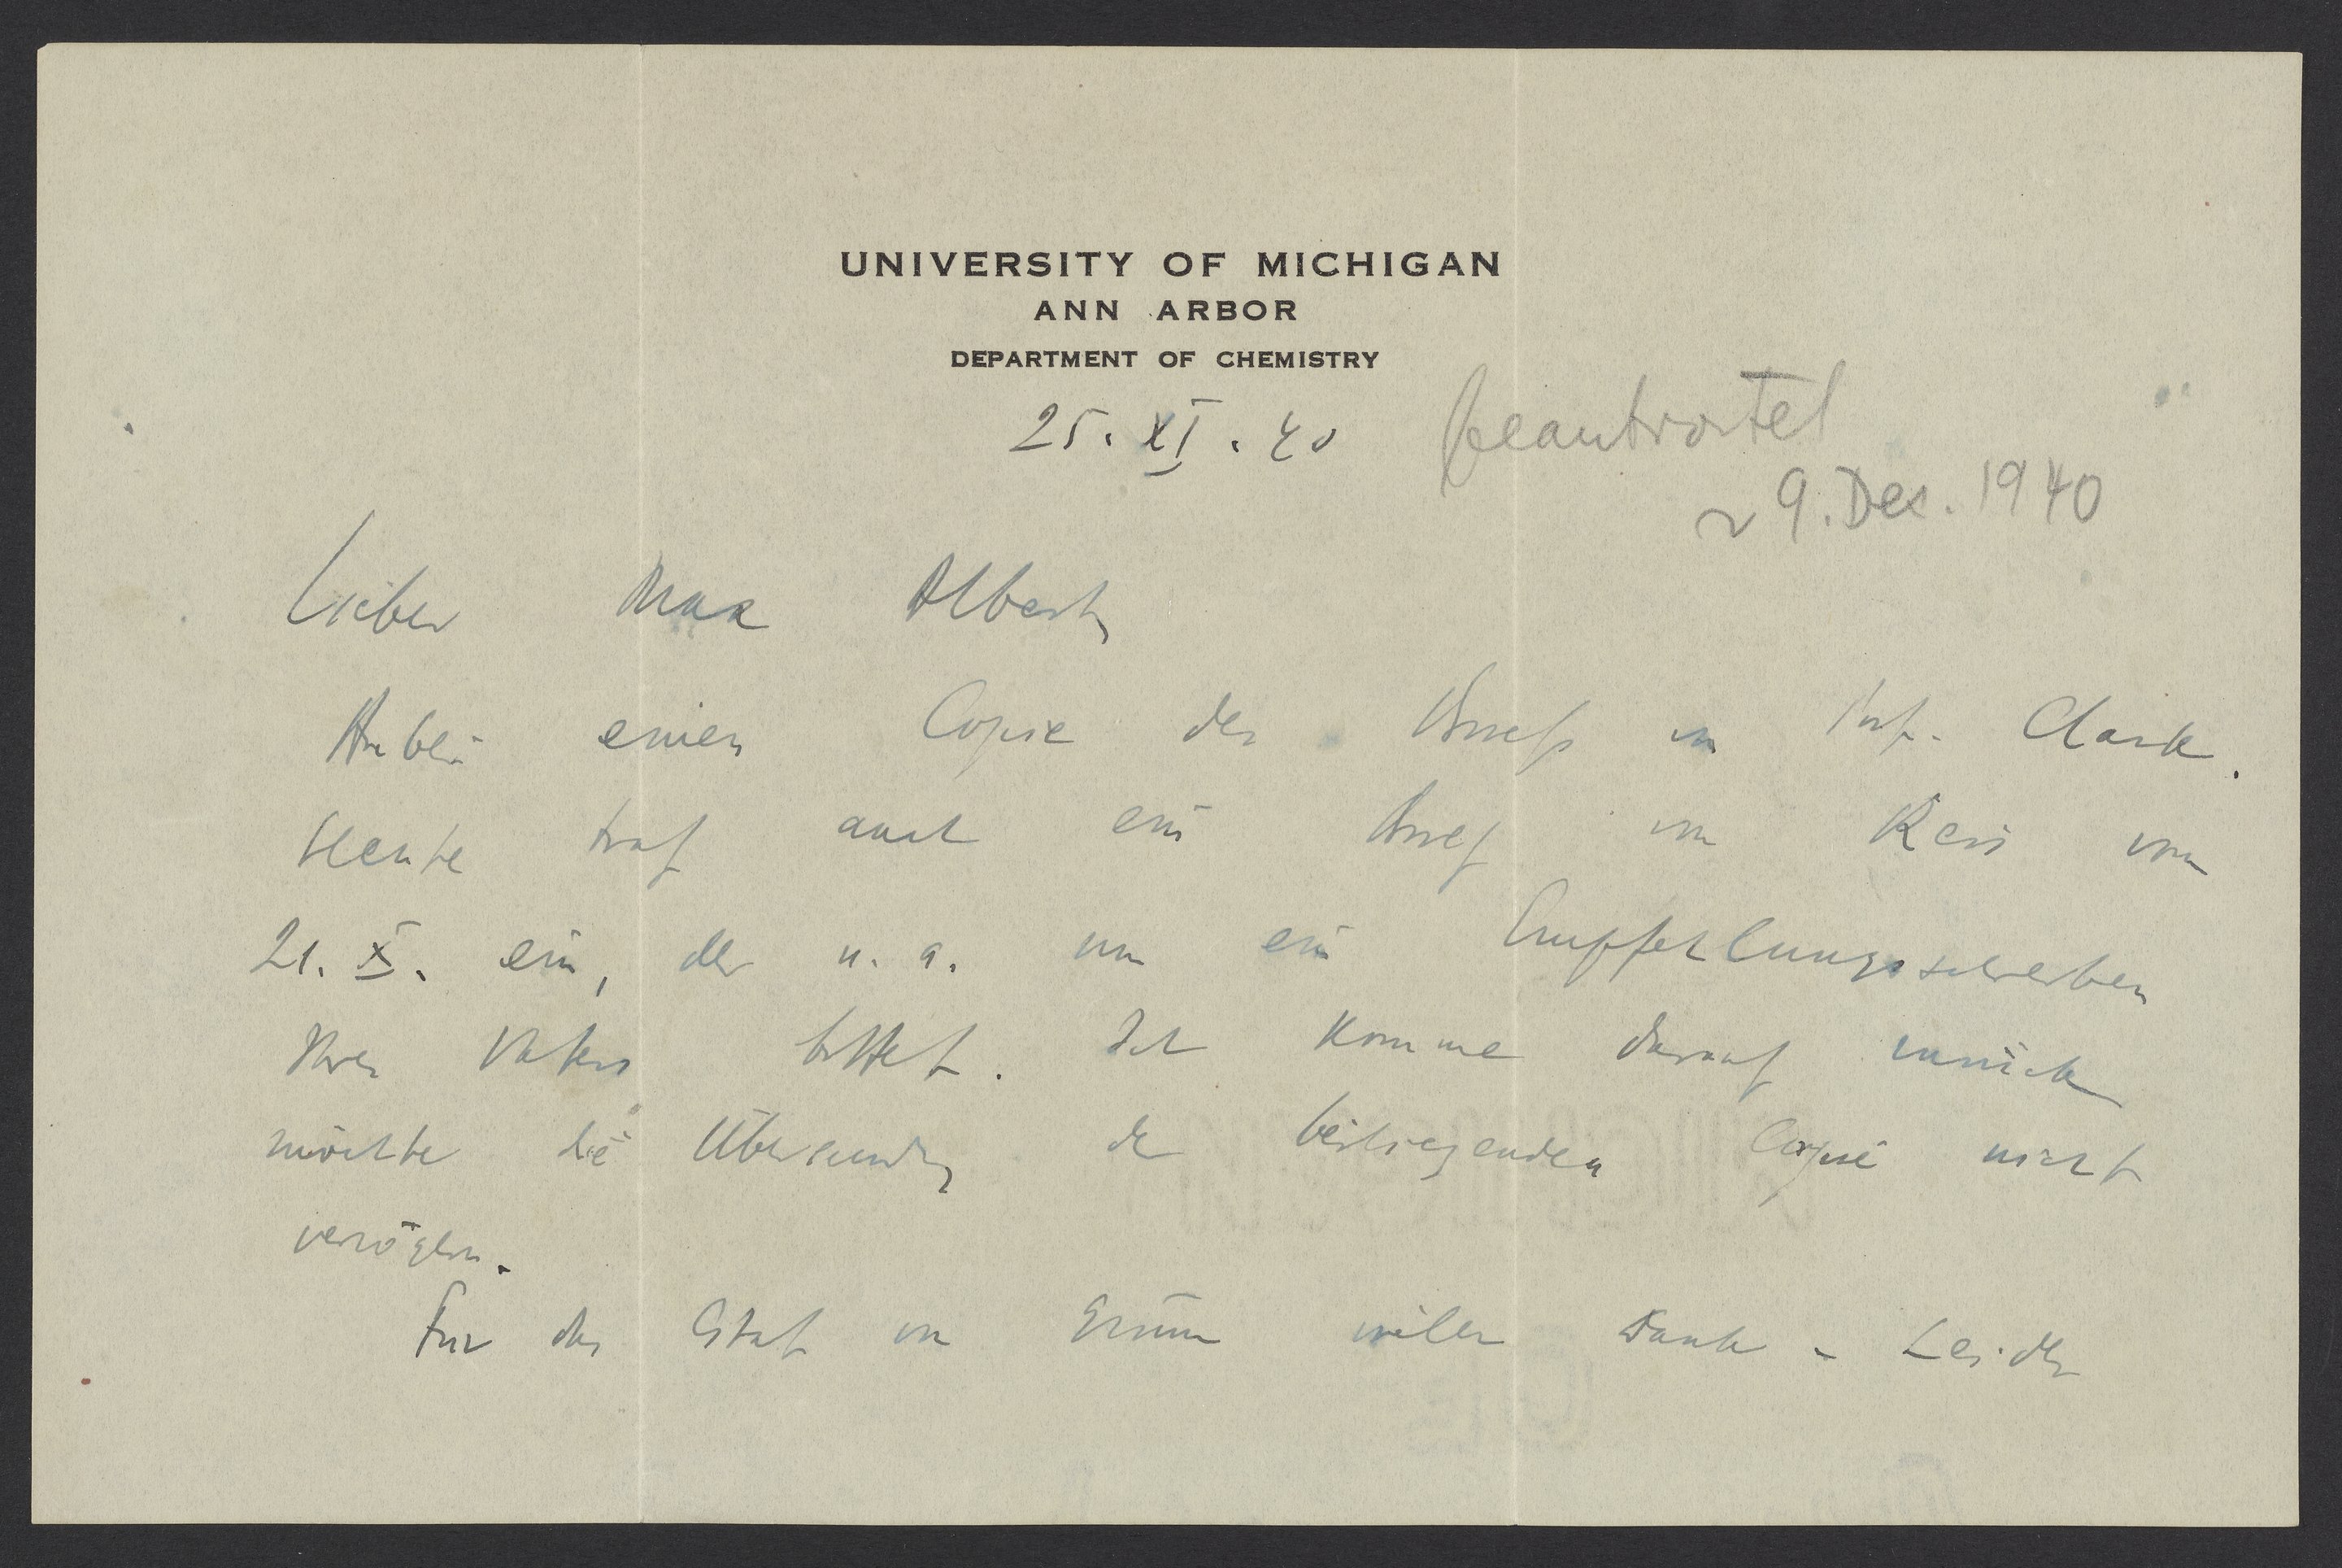 UNIVERSITY OF MICHIGAN
ANN ARBOR
DEPARTMENT OF CHEMISTRY
25. XI. 40
beantwortet
~ 9. Dez. 1940
Lieber Max Albert,
Anbei einen Copie des Briefs an Prof. Clark.
Heute traf auch ein Brief von Reis vom
21. X. ein, der u. a. um ein Empfehlungsschreiben
Ihres Vaters bittet. Ich komme darauf zurück
möchte die Übersendung der beiliegenden Copie nicht
verzögern.
Für das Citat von vielen Dank - Leider